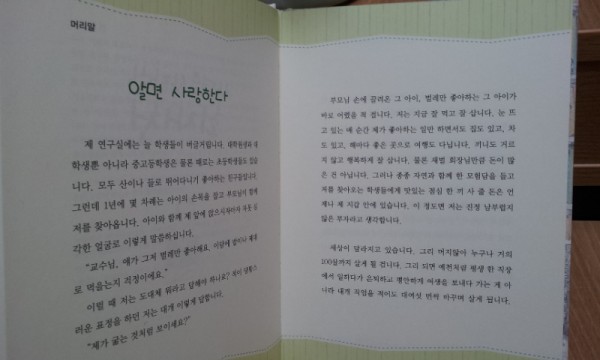 머리말
알면 사랑한다
제 연구실에는 늘 학생들이 버글거립니다. 대학원생과 대
학생뿐 아니라 중고등학생은 물론 때로는 초등학생들도 있습
니다. 모두 산이나 들로 뛰어다니기 좋아하는 친구들입니다.
그런데 1년에 몇 차례는 아이의 손목을 잡고 부모님이 함께
저를 찾아옵니다. 아이와 함께 제 앞에 앉으시자마자 무척 심
각한 얼굴로 이렇게 말씀하십니다.
“교수님, 얘가 그저 벌레만 좋아해요. 이담에 잡이나 제대
로 먹을는지 걱정이에요.”
이럴 때 저는 도대체 뭐라고 답해야 하나요? 적이 당황스
러운 표정을 하던 저는 대개 이렇게 답합니다.
“제가 굶는 것처럼 보이세요?”
부모님 손에 끌려온 그 아이, 벌레만 좋아하는 그 아이가
바로 어렸을 적 접니다. 저는 지금 잘 먹고 잘 삽니다. 눈 뜨
고 있는 매 순간 제가 좋아하는 일만 하면서도 집도 있고, 차
도 있고, 해마다 좋은 곳으로 여행도 다닙니다. 끼니도 거르
지 않고 행복하게 잘 삽니다. 물론 재벌 회장님만큼 돈이 많
은 건 아닙니다. 그러나 종종 자연과 함께 한 모험담을 들고
저를 찾아오는 학생들에게 맛있는 점심 한 끼 사 줄 돈은 언
제나 제 지갑 안에 있습니다. 이 정도면 저는 진정 남부럽지
않은 부자라고 생각합니다.
세상이 달라지고 있습니다. 그리 머지않아 누구나 거의
100살까지 살게 될 겁니다. 그리 되면 예전처럼 평생 한 직장
에서 일하다가 은퇴하고 평안하게 여생을 보내다 가는 게 아
니라 대개 직업을 적어도 대여섯 번씩 바꾸며 살게 됩니다.